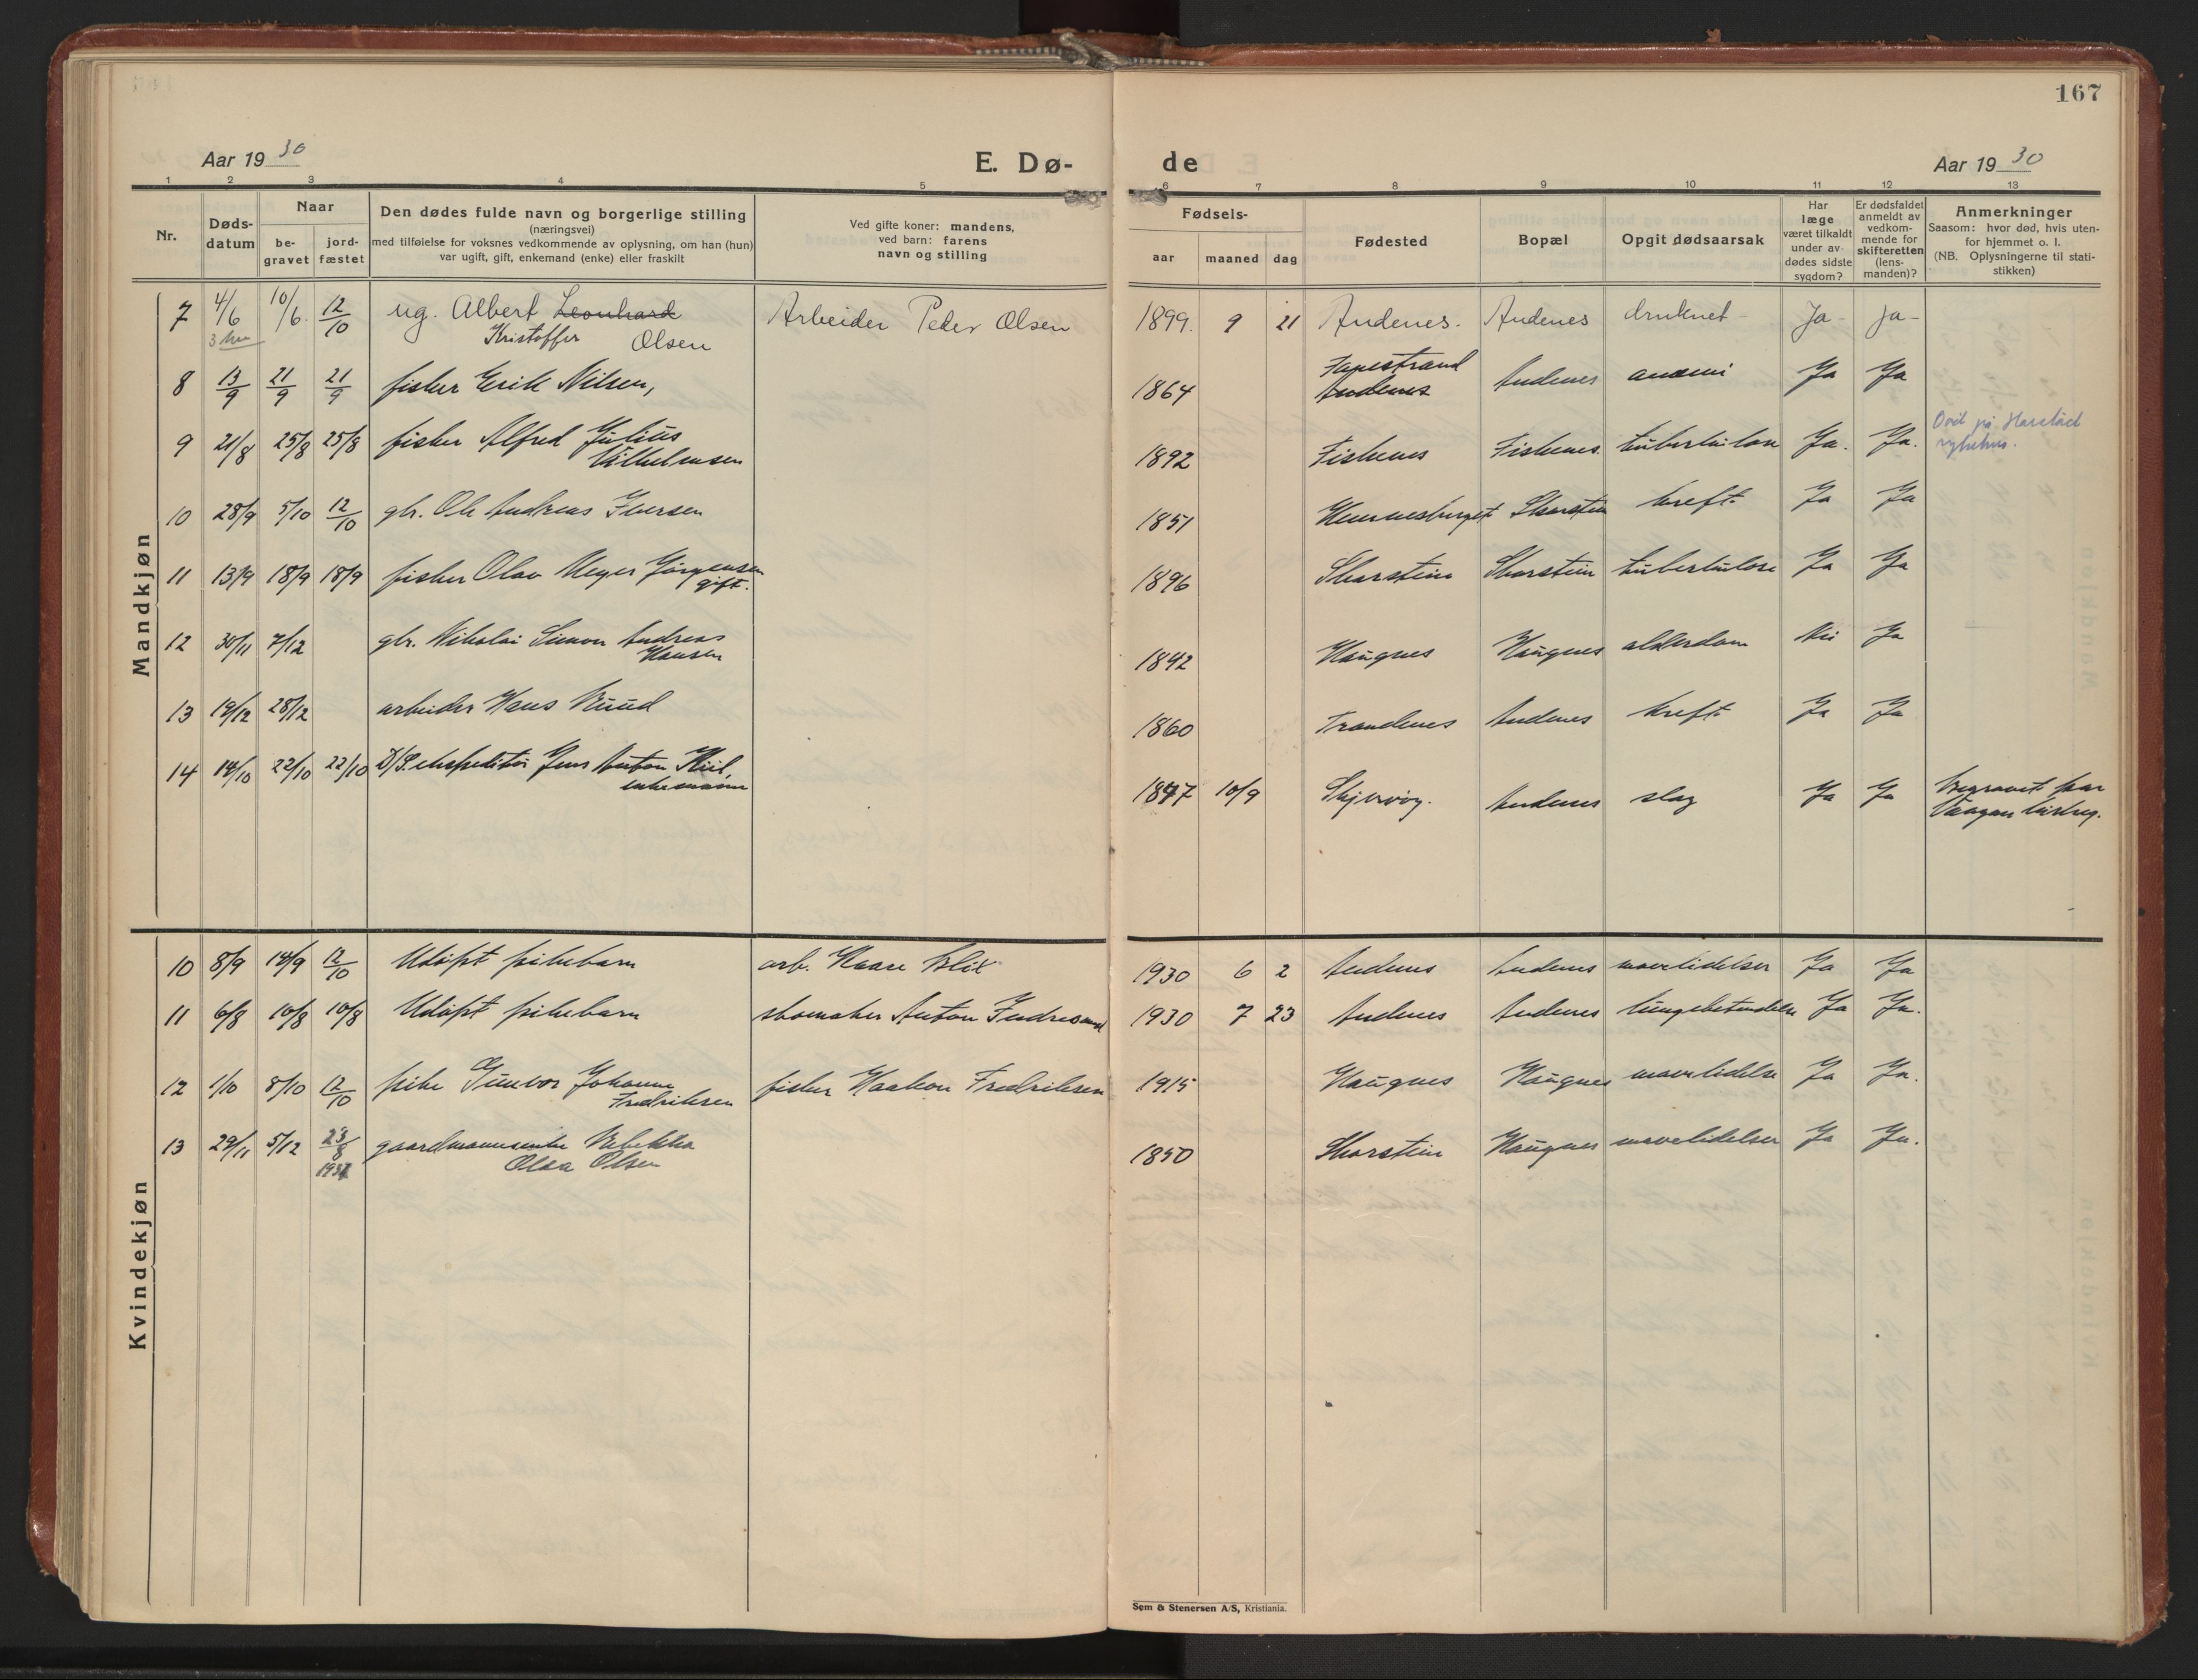 167
Aar 19 30
E. Dø-
de
Aar 19 30
1 2 3 4 5 6 7 8 9 10 11 12 13
Nr.
Døds-
datum
Naar
be-
gravet
jord-
fæstet
Den dødes fulde navn og borgerlige stilling
(næringsvei)
med tilføielse for voksnes vedkommende av oplysning, om han (hun)
var ugift, gift, enkemand (enke) eller fraskilt
Ved gifte koner: mandens,
ved barn: farens
navn og stilling
Fødsels-
aar maaned dag
Fødested
Bopæl
Opgit dødsaarsak
Har
læge
været tilkaldt
under av-
dødes sidste
sygdom?
Er dødsfaldet
anmeldt av
vedkom-
mende for
skifteretten
(lens-
manden)?
Anmerkninger
Saasom: hvor död, hvis uten-
for hjemmet o. l.
(NB. Oplysningerne til stati-
stikken)
Mandkjøn
7 4/6 10/6. 12/10 ug. Albert Leonhard Arbeider Peder Olsen 1899. 9 21 Andenes. Andenes druknet - Ja - Ja -
Kristoffer Olsen
8 13/9 21/9 21/9 fisker Erik Nilsen, 1864 Andenes Andenes anemi Ja Ja
9 21/8 25/8 25/8 fisker Alfred Julius
Vilhelmsen 1892 Fiskenes Fiskenes. Ja. Ja. Död på Harstad
sykehus.
10 28/9 5/10 12/10 gbr. Ole Andreas Iversen 1851 Skarstein kreft. Ja Ja
11 13/9 18/9 18/9 fisker Olav Meyer Jørgensen
gift. 1896 Skarstein Skarstein tuberkulose Ja Ja
12 30/11 7/12 gbr. Nikolai Simon Andreas
Hansen 1842 Haugnes Haugnes alderdom Nei Ja
13 19/12 28/12 arbeider Hans Ruud 1860 Trandenes Andenes kreft. Ja Ja
14 14/10 22/10 22/10 D/S. ekspeditør Jens Anton Kiil,
enkemann 1847 10/9 Skjervøy. Andenes slag Ja Ja Begravet paa
Vaagan kirkeg.
Kvindekjøn
10 8/9 14/9 12/10 Udøpt pikebarn arb. Kaare Blix 1930 6 2 Andenes Andenes mavelidelser Ja Ja
11 6/8 10/8 10/8 Udøpt pikebarn skomaker Anton 1930 7 23 Andenes Andenes lungebetendelse Ja Ja.
12 1/10 8/10 12/10 pike Gunvor Johanne
Fredriksen fisker Haakon Fredriksen 1915 Haugnes Haugnes mavelidelse Ja Ja.
13 29/11 5/12 23/8
1931 gaardmannsenke Rebekka
Olava Olsen 1850 Skarstein Haugnes mavelidelser Ja Ja.
Sem & Stenersen A/S, Kristiania.